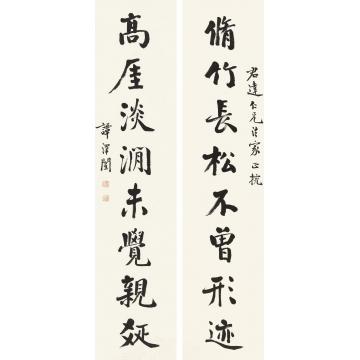 君達仁兄法家正捥
脩竹長松不曾形迹
高厓淡澗未覺親
譚澤闓